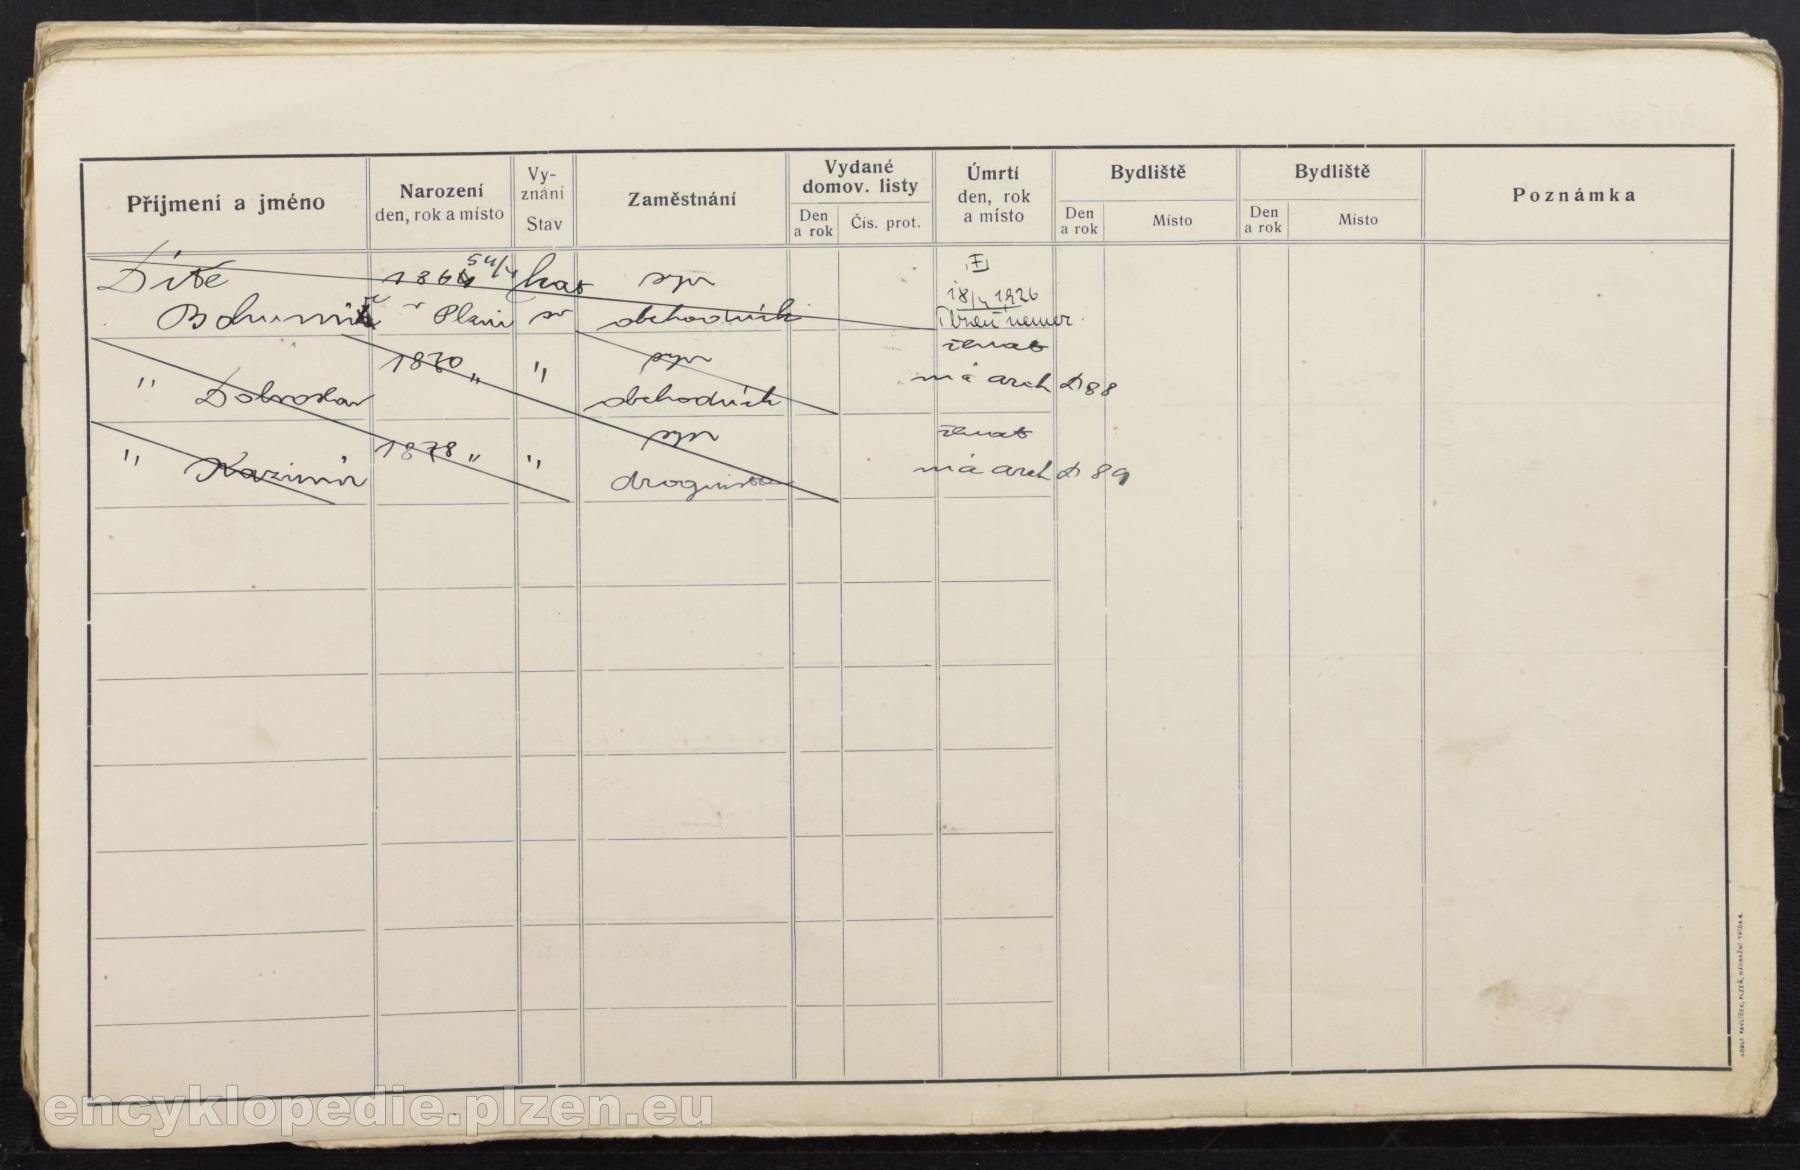 Příjmení a jméno
Narození
den, rok a místo
Vy-
znání
Stav
Zaměstnání
Vydané
domov. listy
Den
a rok
Čís. prot.
Úmrtí
den, rok
a místo
Bydliště
Den
a rok
Místo
Bydliště
Den
a rok
Místo
Poznámka
Dítě 1864 kat syn
18/4 1926
v Plzni sv obchodník Plzeň nemoc.
" Dobroslav 1870 " " syn ženat
obchodník má arch D 88
" Kazimír 1878 " " syn ženat
drogista má arch D 89
ADOLF PAVLÍČEK, PLZEŇ, NÁDRAŽNÍ TŘÍDA 4.
encyklopedie.plzen.eu